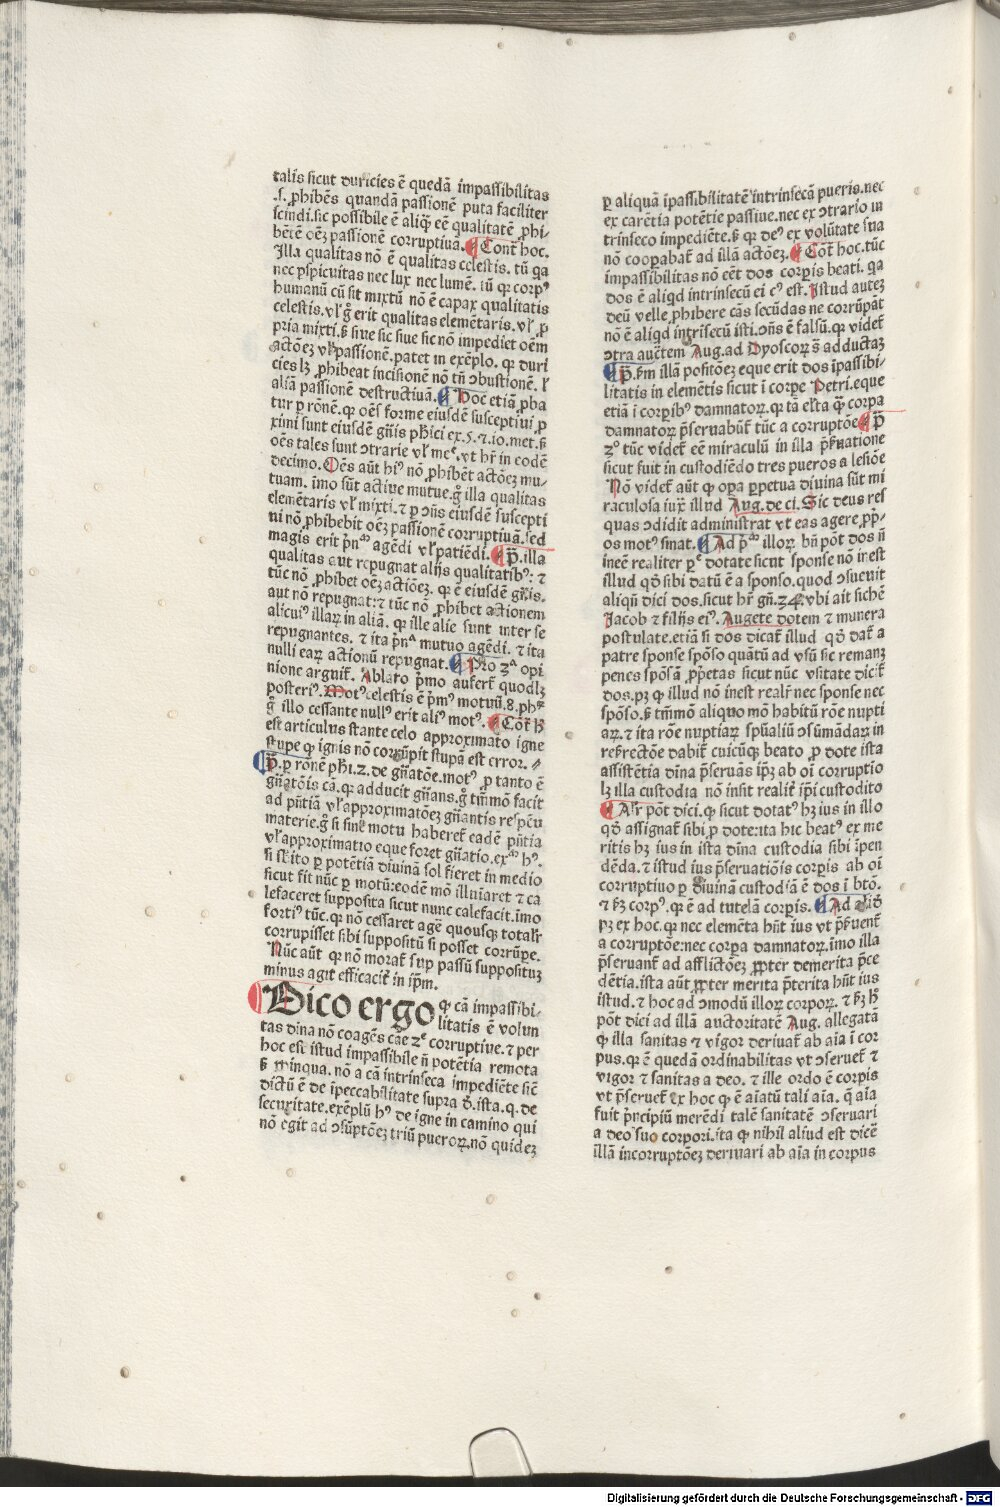 talis sicut duricies ē quedā impassibilitas
.s. ꝓhibēs quandā passionē puta faciliter
scindi.sic possibile ē aliqͥ cē qualitatē ꝓhi-
bētē oēꝫ passionē corruptiua. Cont̄ hoc.
Illa qualitas nō ē qualitas celestis. tū qͣ
nec ꝑspicuitas nec lux nec lumē. tū qꝛ corpꝰ
humanū cū sit mixtū nō ē capax qualitatis
celestis.vl̓ ḡ erit qualitas elemētaris.vl̓ ꝓ
pria mixti.ꝫ siue sic siue sic nō impediet oēm
actōeꝫ vl̓ passionē.patet in exēplo. qꝛ duri
cies lꝫ ꝓhibeat incisionē nō tn̄ ↄbustionē. l̓
aliā passionē destructiuā. Poc etiā ꝓba
tur ꝑ rōnē.qꝛ oēs forme eiusdē susceptiui ꝓ
ximi sunt eiusdē gn̄is pħici ex.5.⁊.10.met.ꝫ
oēs tales sunt ↄtrarie vl̓ meͤ.vt hr̄ in eodē
decimo.Oēs aūt hiꝰ nō ꝓhibēt actōeꝫ mu-
tuam. īmo sūt actiue mutue.ḡ illa qualitas
elemētaris vl̓ mixti.⁊ ꝑ ↄn̄s eiusdē suscepti
ui nō ꝓhibebit oēꝫ passionē corruptiuā.sed
magis erit pͥn̄ᵐ agēdi vl̓ patiēdi. P̄.illa
qualitas aut repugnat alijs qualitatibꝰ: ⁊
tūc nō ꝓhibet oēꝫ actiōeꝫ. qꝛ ē eiusdē gn̄is.
aut nō repugnat:⁊ tūc nō ꝓhibet actionem
alicuiꝰ illaꝝ in aliā. qꝛ ille alie sunt inter se
repugnantes. ⁊ ita pͥn̄ᵃ mutuo agēdi. ⁊ ita
nulli eaꝝ actionū repugnat. Pro 2ᵃ opi
nione arguit̄. Ablato pͥmo aufert̄ quodlꝫ
posteriꝰ. Motꝰ celestis ē pͥmꝰ motuū.8.phꝫ
ḡ illo cessante nullꝰ erit aliꝰ motꝰ. Cōt̄ ħ
est articulus stante celo approximato igne
stupe qꝙ ignis nō corrūpit stupā est error.
P̄.ꝑ rōnē pħi.2.de gn̄atōe.motꝰ ꝓ tanto ē
gn̄atōis cā.qꝛ adducit gn̄ans.ḡ tm̄mō facit
ad pn̄tiā vl̓ approximatōeꝫ gn̄antis respcū
materie.ḡ si sine motu haberet̄ eadē pn̄tia
vl̓ approximatio eque foret gn̄atio.exᵐ hꝰ.
si subito ꝑ potētiā diuinā sol fieret in medio
sicut fit nūc ꝑ motū:eodē mō illuīaret ⁊ ca
lefaceret supposita sicut nunc calefacit.īmo
fortiꝰ tūc.qꝛ nō cessaret agē quousqꝫ totalr̄
corrupisset sibi suppositū si posset corrūpe.
Nūc aūt qꝛ nō morat̄ suꝑ passū suppositūꝫ
minus agit efficacit̄ in ip̄m.
Dico ergo qꝙ cām impassibi-
litatis ē volun
tas dīna nō coagēs cāe 2ͤ corruptiue.⁊ per
hoc est istud impassibile ñ potētia remota
ꝫ ꝓpinqua. nō a cā intrinseca impediēte sic̄
dictū ē de īpeccabilitate supra d̄.ista.q.de
securitate.exēplū hꝰ de igne in camino qui
nō egit ad ↄsūptōeꝫ triū pueroꝝ.nō quideꝫ
ꝑ aliquā īpassibilitatē intrinsecā pueris.nec
ex carētia potētie passiue.nec ex ↄtrario in
trinseco impediēte.ꝫ qꝛ deꝰ ex volūtate sua
nō coopabat̄ ad illā actōeꝫ. Cōt̄ hoc.tūc
impassibilitas nō eēt dos corꝑis beati. qͣ
dos ē aliqd intrinsecū ei cꝰ est. Istud auteꝫ
deū velle ꝓhibere cās secūdas ne corrūpāt
nō ē aliqd intrīsecū isti.ↄn̄s ē falsū.qꝛ videt̄
ↄtra auctem Aug.ad Dyoscoꝝ s̄ adductaꝫ
P̄.ꝫm illā positōeꝫ eque erit dos īpassibi-
litatis in elemētis sicut ī corꝑe Petri.eque
etiā ī corꝑibꝰ damnatoꝝ.qꝛ ita elīta qꝙ corꝑa
damnatoꝝ pͥseruabūt̄ tūc a corruptōe P̄
2° tūc videt̄ eē miraculū in illa pͥseruatione
sicut fuit in custodiēdo tres pueros a lesiōe
Nō videt̄ aūt qꝙ oꝑa ꝑpetua diuina sūt mi
raculosa iuxͣ illud Aug.de ci.Sic deus res
quas ↄdidit administrat vt eas agere ꝓpͥ-
os motꝰ sinat. Ad pͥᵐ illoꝝ bn̄ pōt dos īi
ineē realiter ꝑͤ dotate sicut sponse nō inest
illud qd̄ sibi datū ē a sponso.quod ↄsueuit
aliqn̄ dici dos.sicut hr̄ gn̄.24.vbi ait sichē
Jacob ⁊ filijs eiꝰ. Augete dotem ⁊ munera
postulate.etiā si dos dicat̄ illud qd̄ dat̄ a
patre sponse spōso quātū ad vsū sic remanꝫ
penes spōsā ꝓpͥetas sicut nūc vsitate dicit̄
dos.pꝫ qꝙ illud nō inest realr̄ nec sponse nec
spōso.ꝫ tm̄mō aliquo mō habitū rōe nupti
aꝝ.⁊ ita rōe nuptiaꝝ spūaliū ↄsūmādaꝝ in
resurrectōe dabit̄ cuicūqꝫ beato ꝓ dote ista
assistētia dīna pͥseruās ip̄ꝫ ab oī corruptio
lꝫ illa custodia nō insit realit̄ ip̄i custodito
Alr̄ pōt dici.qꝙ sicut dotatꝰ hꝫ ius in illo
qd̄ assignat̄ sibi ꝓ dote:ita hic beatꝰ ex me
ritis hꝫ ius in ista dīna custodia sibi īpen
dēda.⁊ istud ius pͥseruatiōis corꝑis ab oī
corruptiuo ꝑ diuinā custodiā ē dos ī btō.
⁊ ꝫ corpꝰ.qꝛ ē ad tutelā corꝑis. Ad aliud
pꝫ ex hoc.qꝛ nec elemēta hn̄t ius vt pͥseruent̄
a corruptōe:nec corꝑa damnatoꝝ.īmo illa
pͥseruant̄ ad afflictōeꝫ ꝓpter demerita pͥce
dētia.ista aūt ꝓpter merita pͥterita hn̄t ius
istud.⁊ hoc ad ↄmodū illoꝝ corpoꝝ.⁊ ꝫ ħ
pōt dici ad illā auctoritatē Aug. allegatā
qꝙ illa sanitas ⁊ vigor deriuat̄ ab aīa ī cor
pus.qꝛ ē quedā ordinabilitas vt ↄseruet̄ ⁊
vigor ⁊ sanitas a deo. ⁊ ille ordo ē corꝑis
vt pͥseruet̄ ex hoc qꝙ ē aīatū tali aīa. qͣ aīa
fuit pͥncipiū merēdi talē sanitatē ↄseruari
a deo suo corpori.ita qꝙ nihil aliud est dicē
illā incorruptōeꝫ deriuari ab aīa in corpus
Digitalisierung gefördert durch die Deutsche Forschungsgemeinschaft - DFG